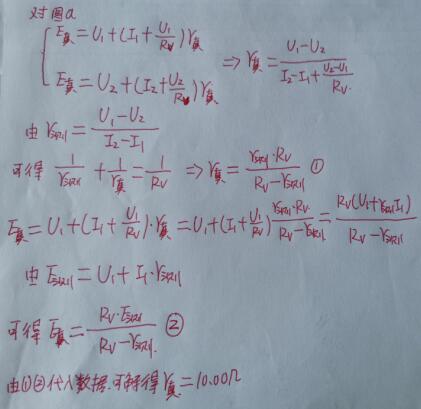 对图a
E真=U₁+(I₁+U₁/R_V)r真
E真=U₂+(I₂+U₂/R_V)r真 ⇒ r真=(U₁-U₂)/(I₂-I₁+(U₂-U₁)/R_V)
由 r测=(U₁-U₂)/(I₂-I₁)
可得 1/r测+1/r真=1/R_V ⇒ r真=r测·R_V/(R_V-r测) ①
E真=U₁+(I₁+U₁/R_V)·r真=U₁+(I₁+U₁/R_V)r测·R_V/(R_V-r测)=R_V(U₁+r测I₁)/(R_V-r测)
由 E测=U₁+I₁·r测
可得 E真=R_V·E测/(R_V-r测) ②
由①②代入数据.可解得r真=10.00Ω